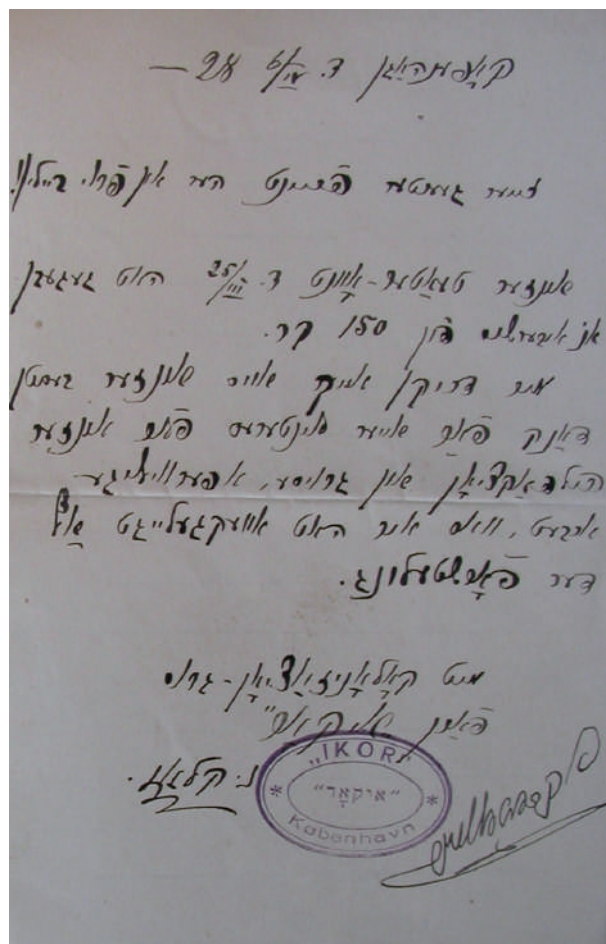 קאָפּענהאַגען ד. 6/VI 28 —
זייער געעטער פֿריינט הער און פֿרוי ביילין!
אונזער טעאַטער-אָוונט ד. 25/III האט געגעבן
אן איבערשוס פון 150 קר.
מיר דריקן אייך אויס אונזער בעסטן
דאַנק פֿאַר אייער אינטערעס פֿאַר אונזער
הילפֿאַקציאָן און גרויסע, אָפּפֿערוויליגע
ארבעט, וואס איר האט אוועקגעלייגט
דער פֿאָרשטעלונג.
מיט קאָלאָניזאַציאָן-גרוס
פֿאַרן "איקאָר"
„IKOR"
"איקאָר"
København